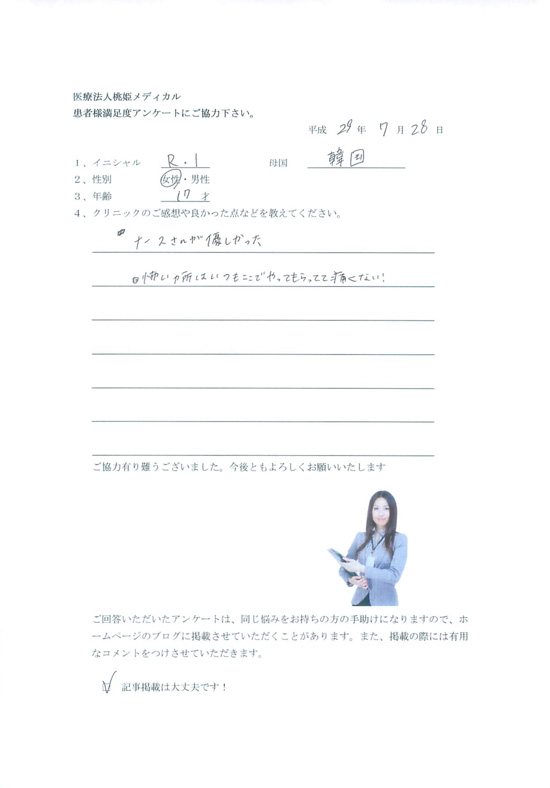 医療法人桃姫メディカル
患者様満足度アンケートにご協力下さい。
平成 29 年 7 月 28 日
1、イニシャル R.I 母国 韓国
2、性別 女性・男性
3、年齢 17 才
4、クリニックのご感想や良かった点などを教えてください。
ナースさんが優しかった
怖い所はいつもここでやってもらってて痛くない!
ご協力有り難うございました。今後ともよろしくお願いいたします
ご回答いただいたアンケートは、同じ悩みをお持ちの方の手助けになりますので、ホ
ームページのブログに掲載させていただくことがあります。また、掲載の際には有用
なコメントをつけさせていただきます。
記事掲載は大丈夫です!